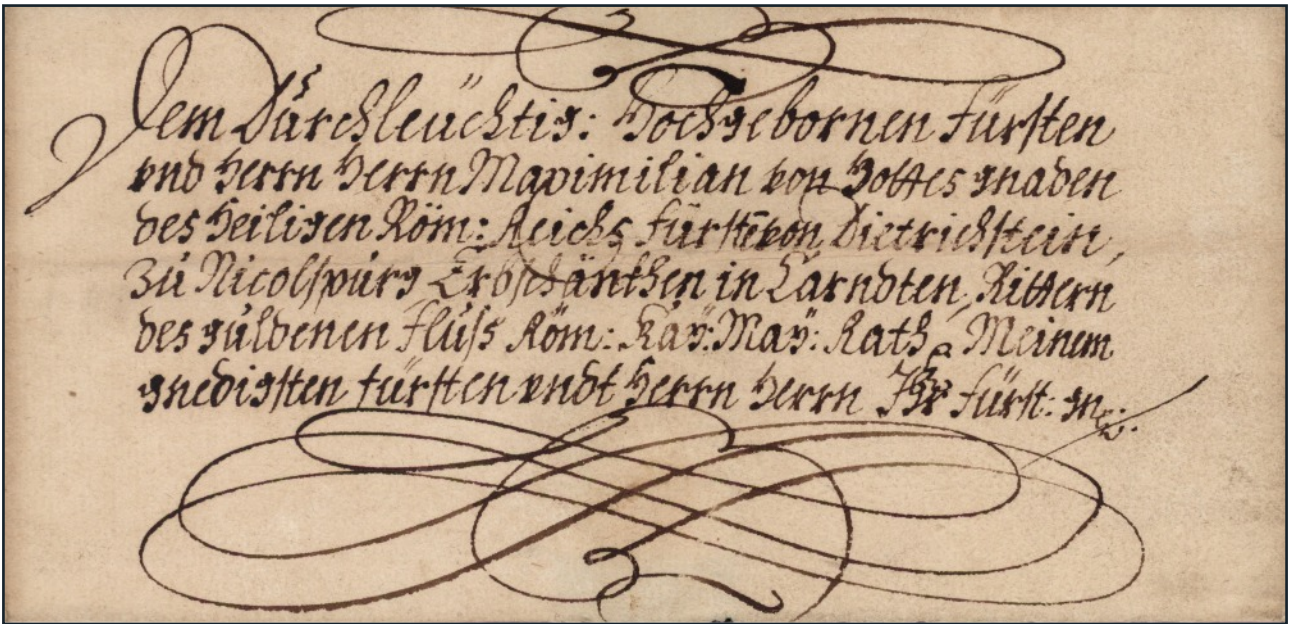 Dem Dürchleüchtig: Hochgebornen Fürsten
vnd Herrn Herrn Maximilian von Gottes gnaden
des Heiligen Röm: Reichs Fürstē von Dietrichstein,
zü Nicolspürg Erbschänkhen in Carndten, Rittern
des güldenen Flüss Röm: Kaÿ: Maÿ: Rath, Meinem
gnedigsten fürsten vndt Herrn Herrn Ihr Fürst: gn: